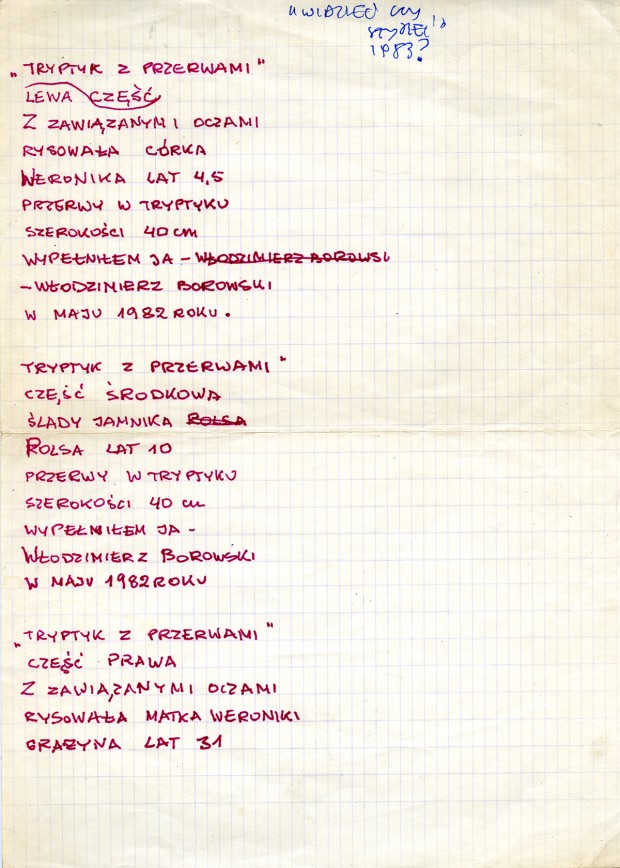 "UWIDZIEĆ CZY
1983?
"TRYPTYK Z PRZERWAMI"
LEWA CZĘŚĆ
Z ZAWIĄZANYMI OCZAMI
RYSOWAŁA CÓRKA
WERONIKA LAT 4,5
PRZERWY W TRYPTYKU
SZEROKOŚCI 40 cm
WYPEŁNIŁEM JA – WŁODZIMIERZ BOROWSI
– WŁODZIMIERZ BOROWSKI
W MAJU 1982 ROKU.
TRYPTYK Z PRZERWAMI"
CZĘŚĆ ŚRODKOWA
ŚLADY JAMNIKA ROLSA
ROLSA LAT 10
PRZERWY W TRYPTYKU
SZEROKOŚCI 40 cm
WYPEŁNIŁEM JA –
WŁODZIMIERZ BOROWSKI
W MAJU 1982 ROKU
"TRYPTYK Z PRZERWAMI"
CZĘŚĆ PRAWA
Z ZAWIĄZANYMI OCZAMI
RYSOWAŁA MATKA WERONIKI
GRAŻYNA LAT 31